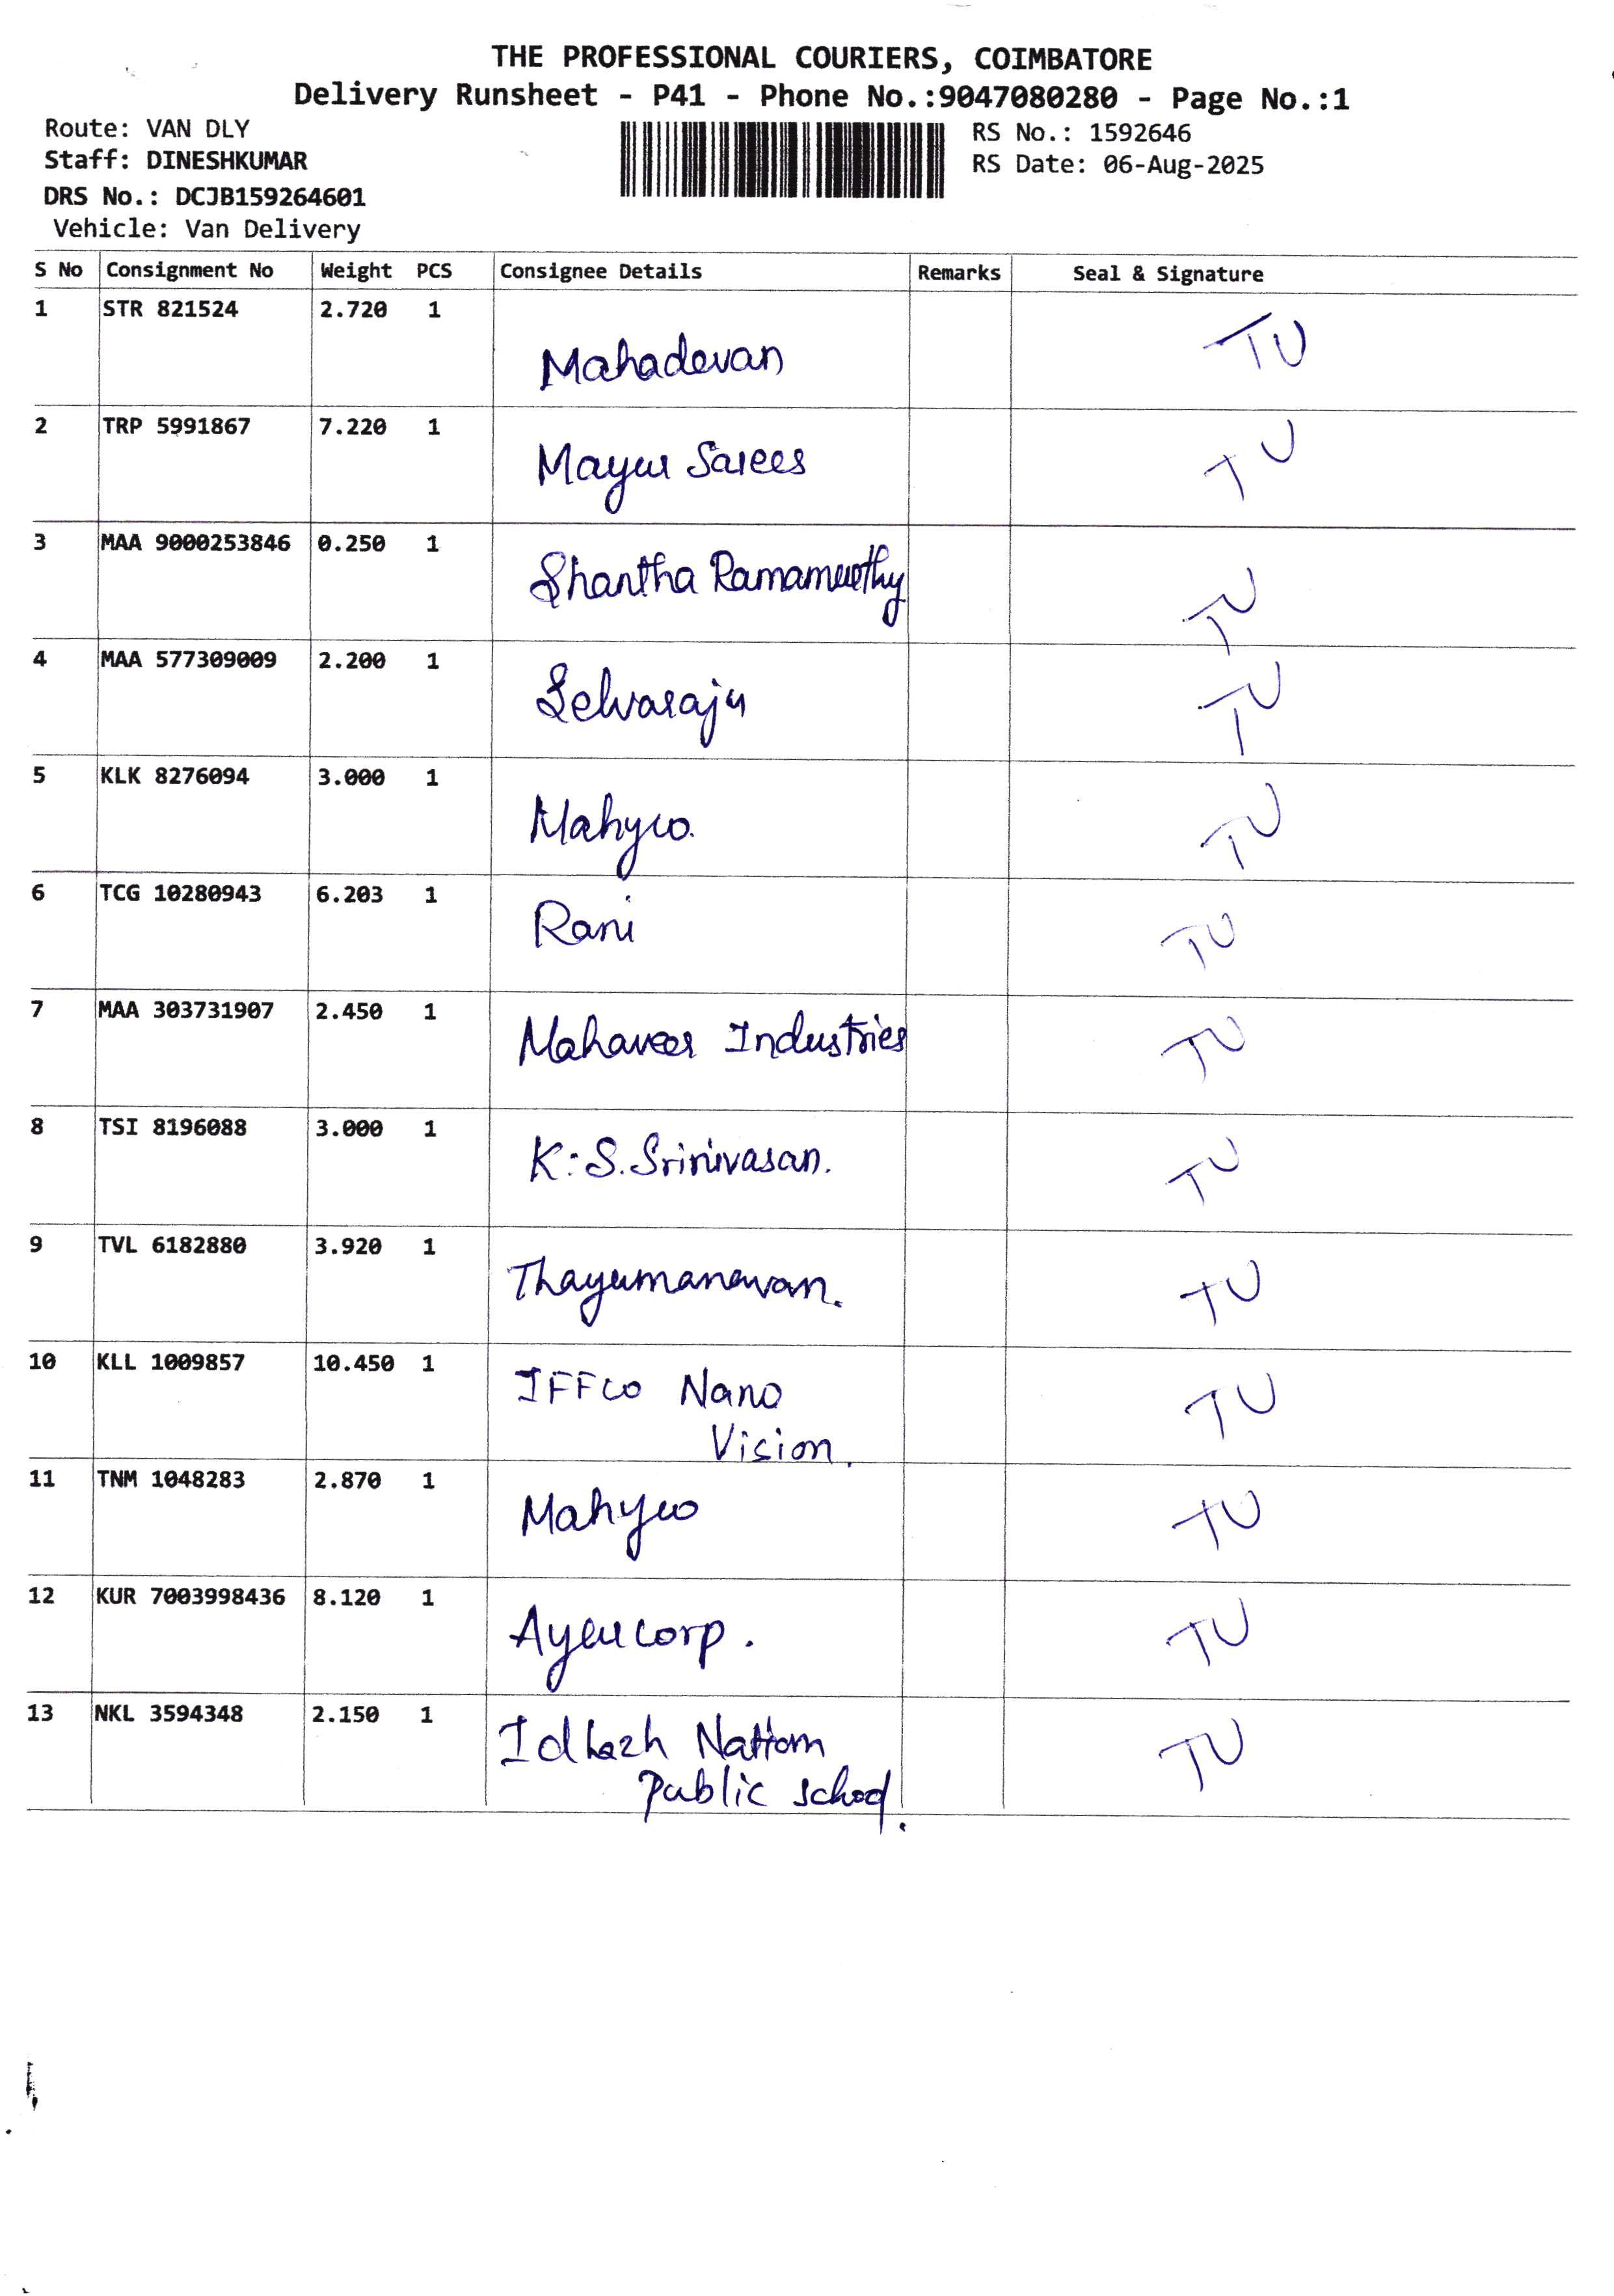 THE PROFESSIONAL COURIERS, COIMBATORE
Delivery Runsheet - P41 - Phone No.:9047080280 - Page No.:1
Route: VAN DLY
Staff: DINESHKUMAR
DRS No.: DCJB159264601
Vehicle: Van Delivery
RS No.: 1592646
RS Date: 06-Aug-2025
S No Consignment No Weight PCS Consignee Details Remarks Seal & Signature
1 STR 821524 2.720 1 Mahadevan TU
2 TRP 5991867 7.220 1 Mayur Sarees TU
3 MAA 9000253846 0.250 1 Shantha Ramamurthy TU
4 MAA 577309009 2.200 1 Selvaraju TU
5 KLK 8276094 3.000 1 Mahyco. TU
6 TCG 10280943 6.203 1 Rani TU
7 MAA 303731907 2.450 1 Mahaveer Industries TU
8 TSI 8196088 3.000 1 K.S. Srinivasan. TU
9 TVL 6182880 3.920 1 Thayumanavan. TU
10 KLL 1009857 10.450 1 IFFco Nano TU
Vision.
11 TNM 1048283 2.870 1 Mahyco TU
12 KUR 7003998436 8.120 1 TU
13 NKL 3594348 2.150 1 TU
Public School.